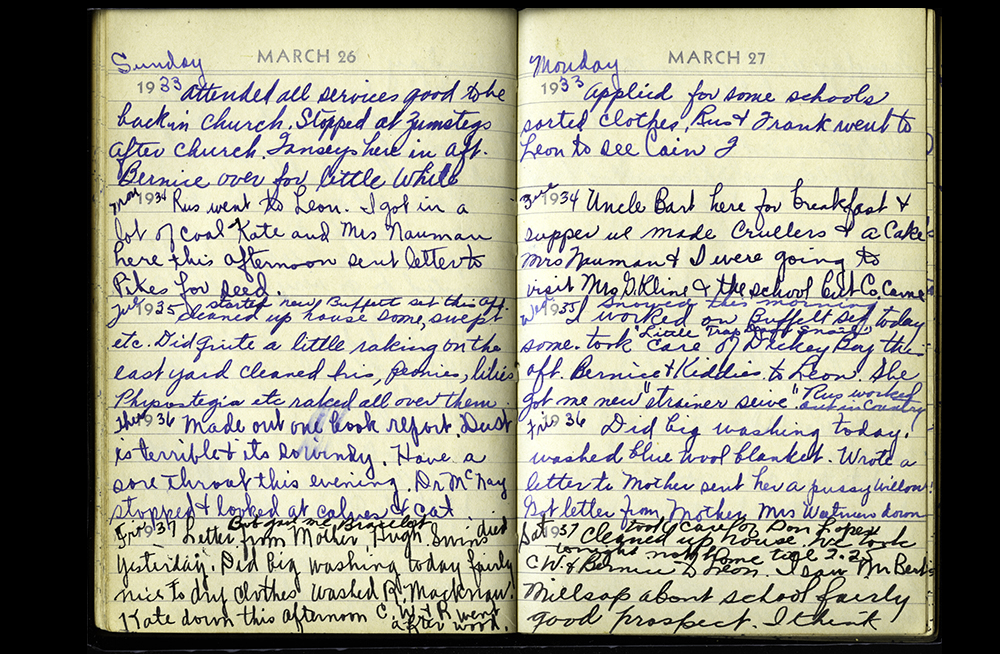 Sunday
MARCH 26
1933 attended all services good to be
back in church. Stopped at Zumstegs
after church. Tanseys here in aft.
Bernice over for little while
Mon 1934 Rus went to Leon. I got in a
lot of coal Kate and Mrs Nauman
here this afternoon sent letter to
Pikes for seed.
started new Buffett set this aft.
Tue 1935 cleaned up house some, swept
etc. Did quite a little raking on the
east yard cleaned Iris, peonies, lilies
Physostegia etc raked all over them.
Thur 1936 Made out one book report. Dust
is terrible & its so windy. Have a
sore throat this evening. Dr McNay
stopped & looked at calves & cat
gave me Bracelet
Fri 1937 Letter from Mother Hugh died
yesterday. Did big washing today fairly
nice to dry clothes washed R. Mackinaw.
Kate down this afternoon C.W. & R went
after wood.
Monday
MARCH 27
1933 applied for some schools
sorted clothes, Rus & Frank went to
Leon to see Cain
1934 Uncle Bart here for breakfast &
supper we made Crullers & a Cake
Mrs Nauman & I were going to
visit Mrs G. Kline & the school but Co. Came
Snowed this morning
Wed 1935 I worked on Buffett set today
"Little Trap Door Snare"
some. took care of Dickey Boy this
aft. Bernice & Kiddies to Leon. She
got me new "strainer seive" Rus worked
out in Country
Fri 1936 Did big washing today.
washed blue wool blanket. Wrote a
letter to Mother sent her a pussy willow.
Got letter from Mother Mrs down
took care of Don
Sat 1937 Cleaned up house. We took
tonight not home till 2.20
C W. & Bernice to Leon. I saw Mr Bert
Millsap about school fairly
good prospect. I think